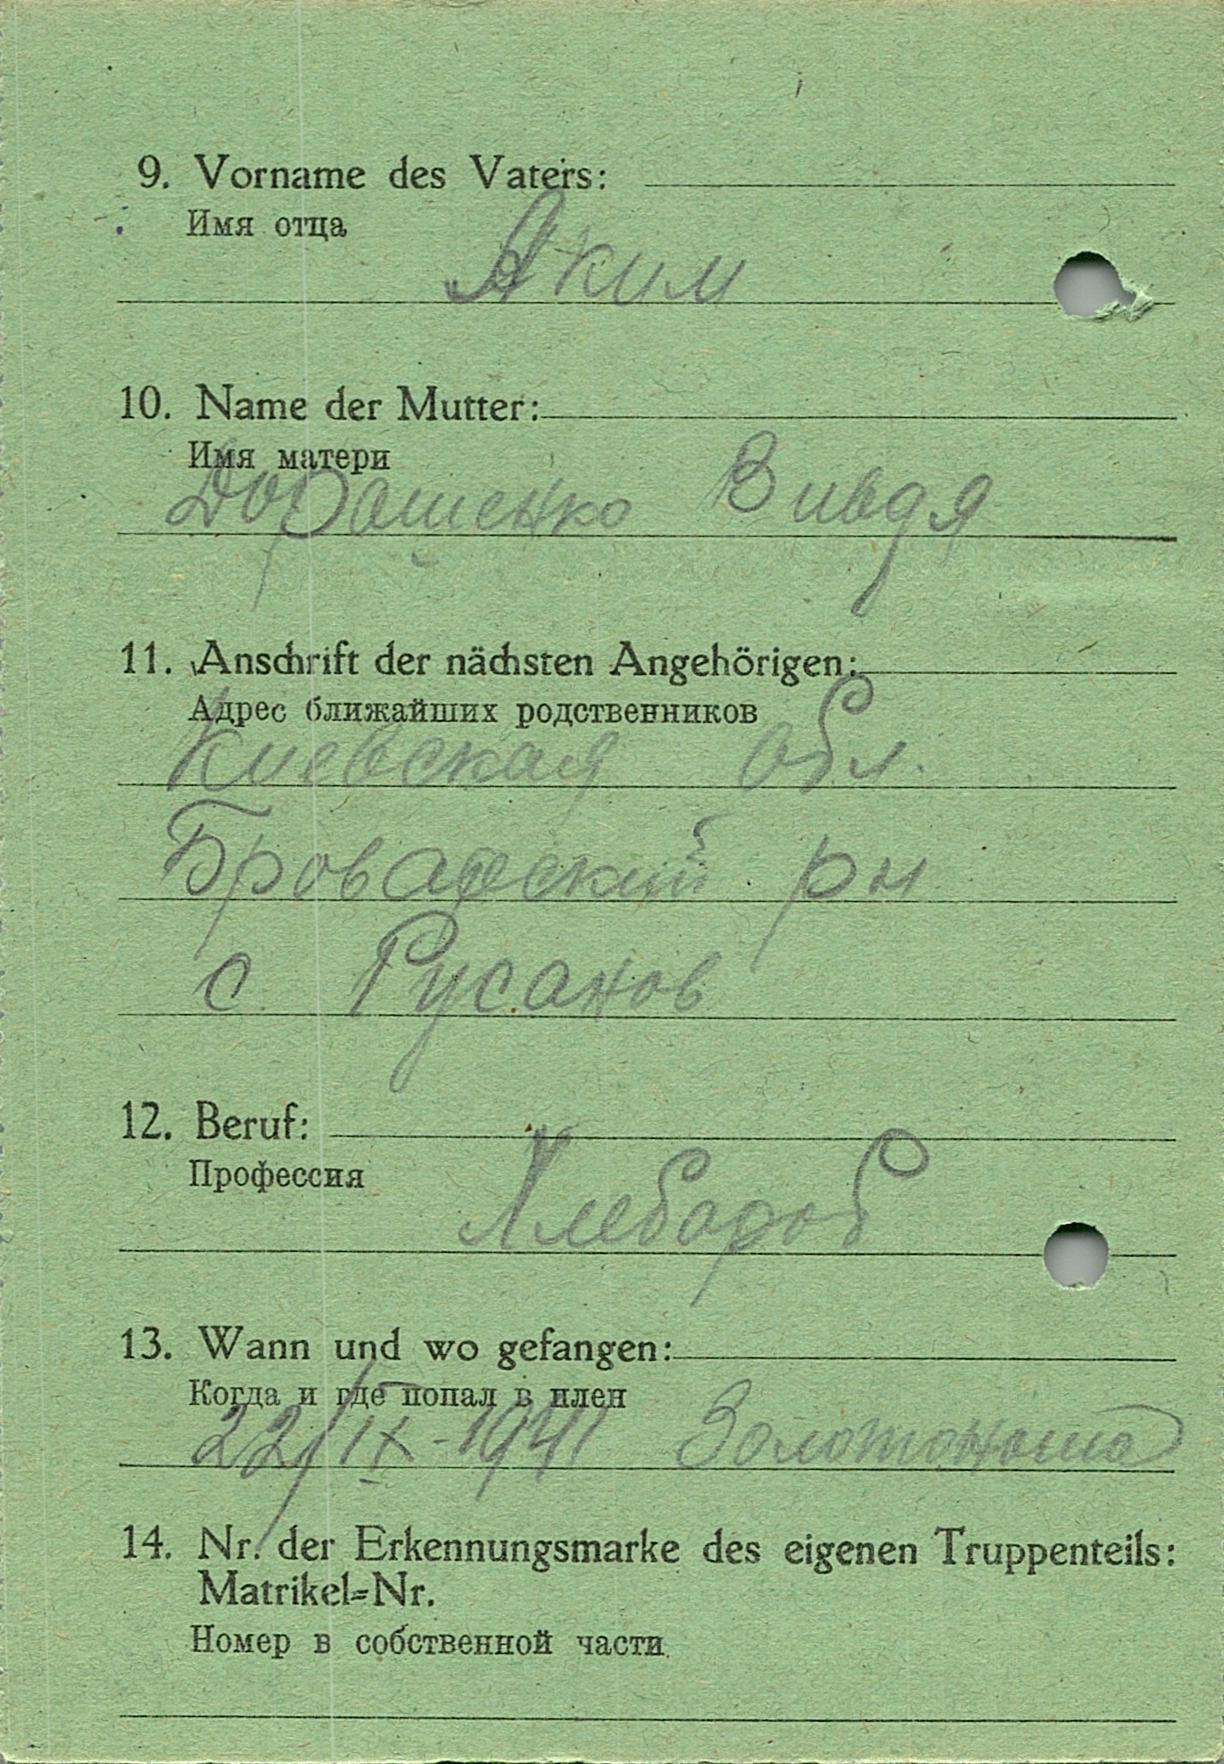 9. Vorname des Vaters:
Имя отца
Яким
10. Name der Mutter:
Имя матери
Дорошенко Вивдя
11. Anschrift der nächsten Angehörigen:
Адрес ближайших родственников
Киевская обл.
Броварский рн
с. Русанов
12. Beruf:
Профессия
Хлебороб
13. Wann und wo gefangen:
Когда и где попал в плен
22/IX-1941 Золотоноша
14. Nr. der Erkennungsmarke des eigenen Truppenteils:
Matrikel=Nr.
Номер в собственной части.